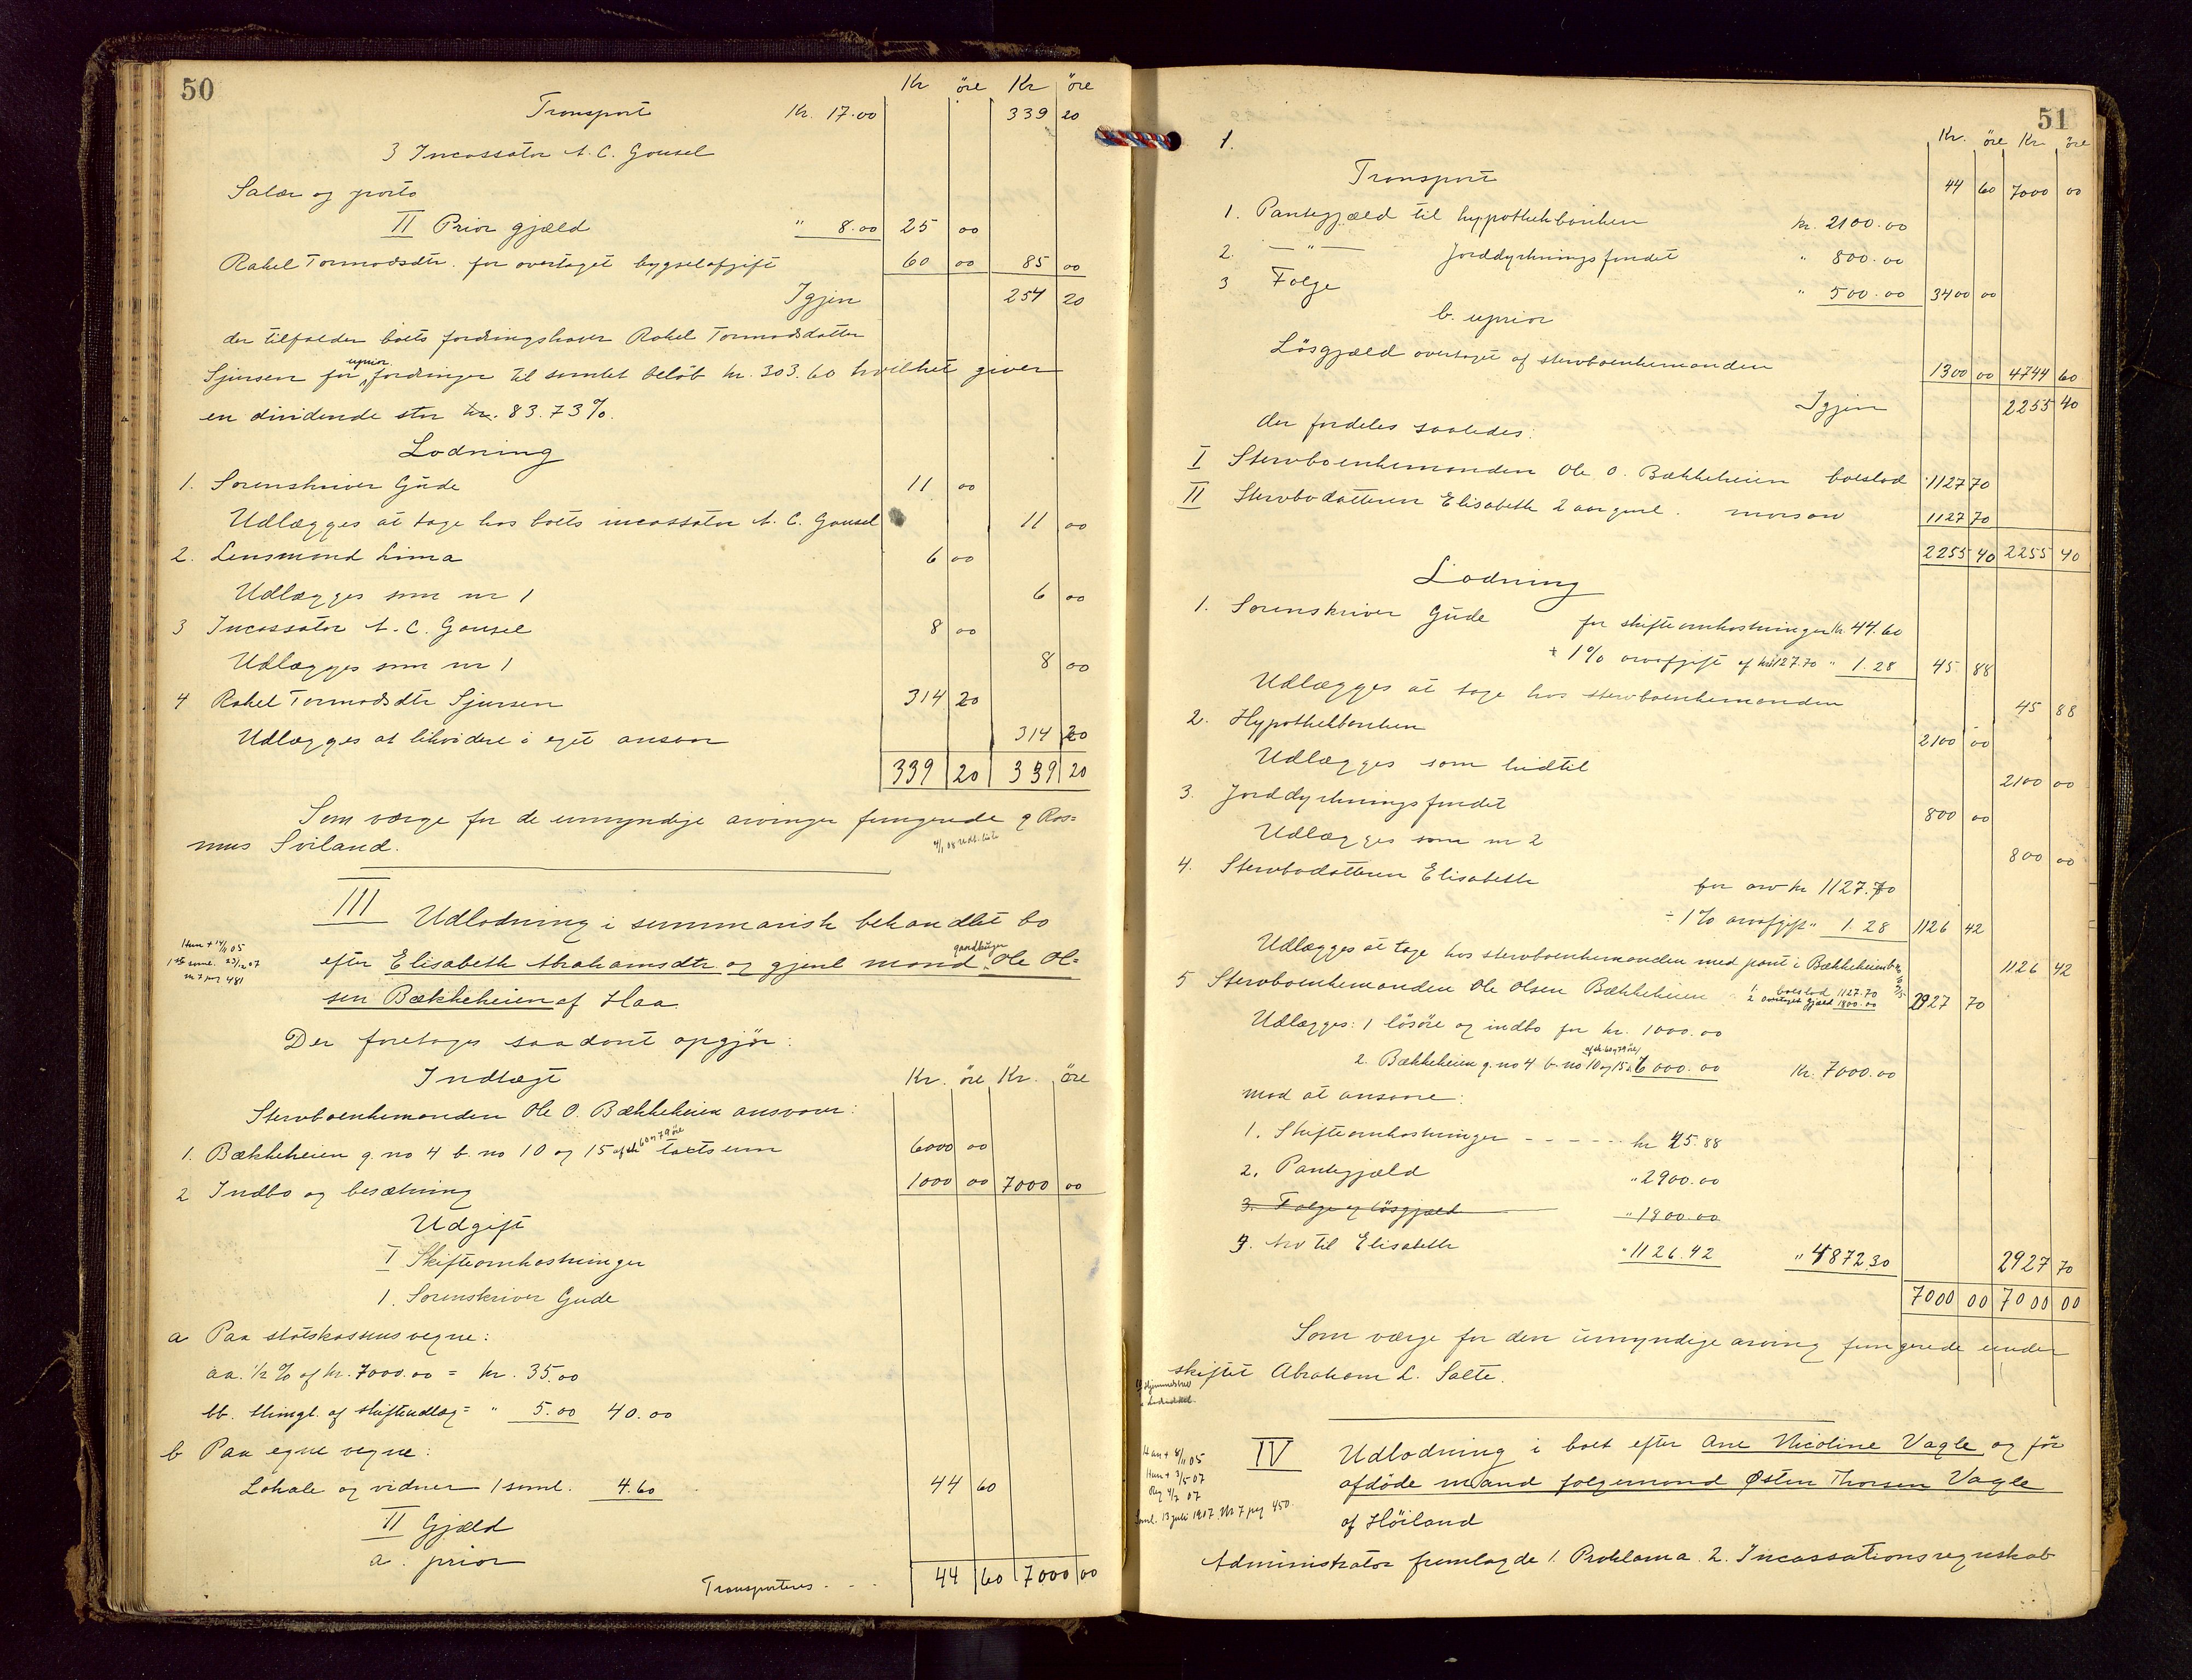 50
Kr øre Kr øre
Transport Kr. 17.00 339 20
3 Incassator A. C. Gausel
Salær og porto
II Prior gjæld " 8.00 25 00
Rakel Tormodsdtr. for overtaget bygselafgift 60 00 85 00
Igjen 254 20
der tilfalder boets fordringshaver Rakel Tormodsdatter
Sjursen for uprior fordringer til samlet beløb kr. 303.60 hvilket giver
en dividende stor kr. 83.73%.
Lodning
1. Sorenskriver Gude 11 00
Udlægges at tage hos boets incassator A. C. Gausel 11 00
2. Lensmand Lima 6 00
Udlægges som nr 1 6 00
3 Incassator A. C. Gausel 8 00
Udlægges som nr 1 8 00
4 Rakel Tormodsdtr Sjursen 314 20
Udlægges at likvidere i eget ansvar 314 20
339 20 339 20
Som værge for de umyndige arvinger fungerede g Ras=
mus Sviland.
III Udlodning i summarisk behandlet bo
Hun + 14/11 05
23/12 07
nr 7 pg 481
efter Elisabeth Abrahamsdtr. og gjenl mand gardbruger Ole Ol=
sen Bækkeheien af Haa.
Der foretages saadant opgjør:
Indtægt Kr. øre Kr. øre
Stervboenkemanden Ole O. Bækkeheien ansvarer:
1. Bækkeheien g. no 4 b. no 10 og 15 af sk 60 og 79 øre taxtsum 6000 00
2 Indbo og besætning 1000 00 7000 00
Udgift
I Skifteomkostninger
1. Sorenskriver Gude
a Paa statskassens vegne:
aa. 1/2 % af kr. 7000.00 = kr. 35.00
bb. thingl. af skifteudlæg = " 5.00 40.00
b Paa egne vegne:
Lokale og vidner 1 saml. 4.60 44 60
II Gjæld
a. prior
Transporteres . . . 44 60 7000 00
51
1. Kr. øre Kr øre
Transport 44 60 7000 00
1. Pantegjæld til hypothekbanken kr. 2100.00
2. — " — Jorddyrkningsfondet " 800.00
3 Følge " 500.00 3400 00
b. uprior
Løsgjæld overtaget af stervboenkemanden 1300 00 4744 60
Igjen 2255 40
der fordeles saaledes:
I Stervboenkemanden Ole O. Bækkeheien boeslod 1127 70
II Stervbodatteren Elisabeth 2 aar gml. morsarv 1127 70
2255 40 2255 40
Lodning
1. Sorenskriver Gude for skifteomkostninger kr 44.60
+ 1% arvafgift af kr 1127.70 " 1.28 45 88
Udlægges at tage hos stervboenkemanden 45 88
2. Hypothekbanken 2100 00
Udlægges som hidtil 2100 00
3. Jorddyrkningsfondet 800 00
Udlægges som nr 2 800 00
4. Stervbodatteren Elisabeth for arv kr 1127.70
÷ 1% arvafgift " 1.28 1126 42
Udlægges at tage hos stervboenkemanden med pant i Bækkeheien 1126 42
5 Stervboenkemanden Ole Olsen Bækkeheien 1. boeslod 1127.70
2 overtaget gjæld 1800.00 2927 70
Udlægges: 1 løsøre og indbo for kr. 1000.00
2. Bækkeheien g. no 4 b. no 10 og 15 af sk. 60 og 79 øre 6000.00 Kr. 7000.00
mod at ansvare:
1. Skifteomkostninger - - - - - kr 45.88
2. Pantegjæld " 2900.00
3. Følge og løsgjæld " 1800.00
4. Arv til Elisabeth " 1126.42 " 4872.30 2927 70
7000 00 7000 00
Som værge for den umyndige arving fungerede under
skiftet Abraham L. Salte.
IV Udlodning i boet efter Ane Nicoline Vagle og før
Han + 8/11 05
Hun + 3/5 07
Reg 4/7 07
Saml. 13 juli 1907. Nr 7 pag 450.
afdøde mand følgemand Østen Thorsen Vagle
af Høiland
Administrator fremlagde 1. Proklama. 2. Incassationsregnskab